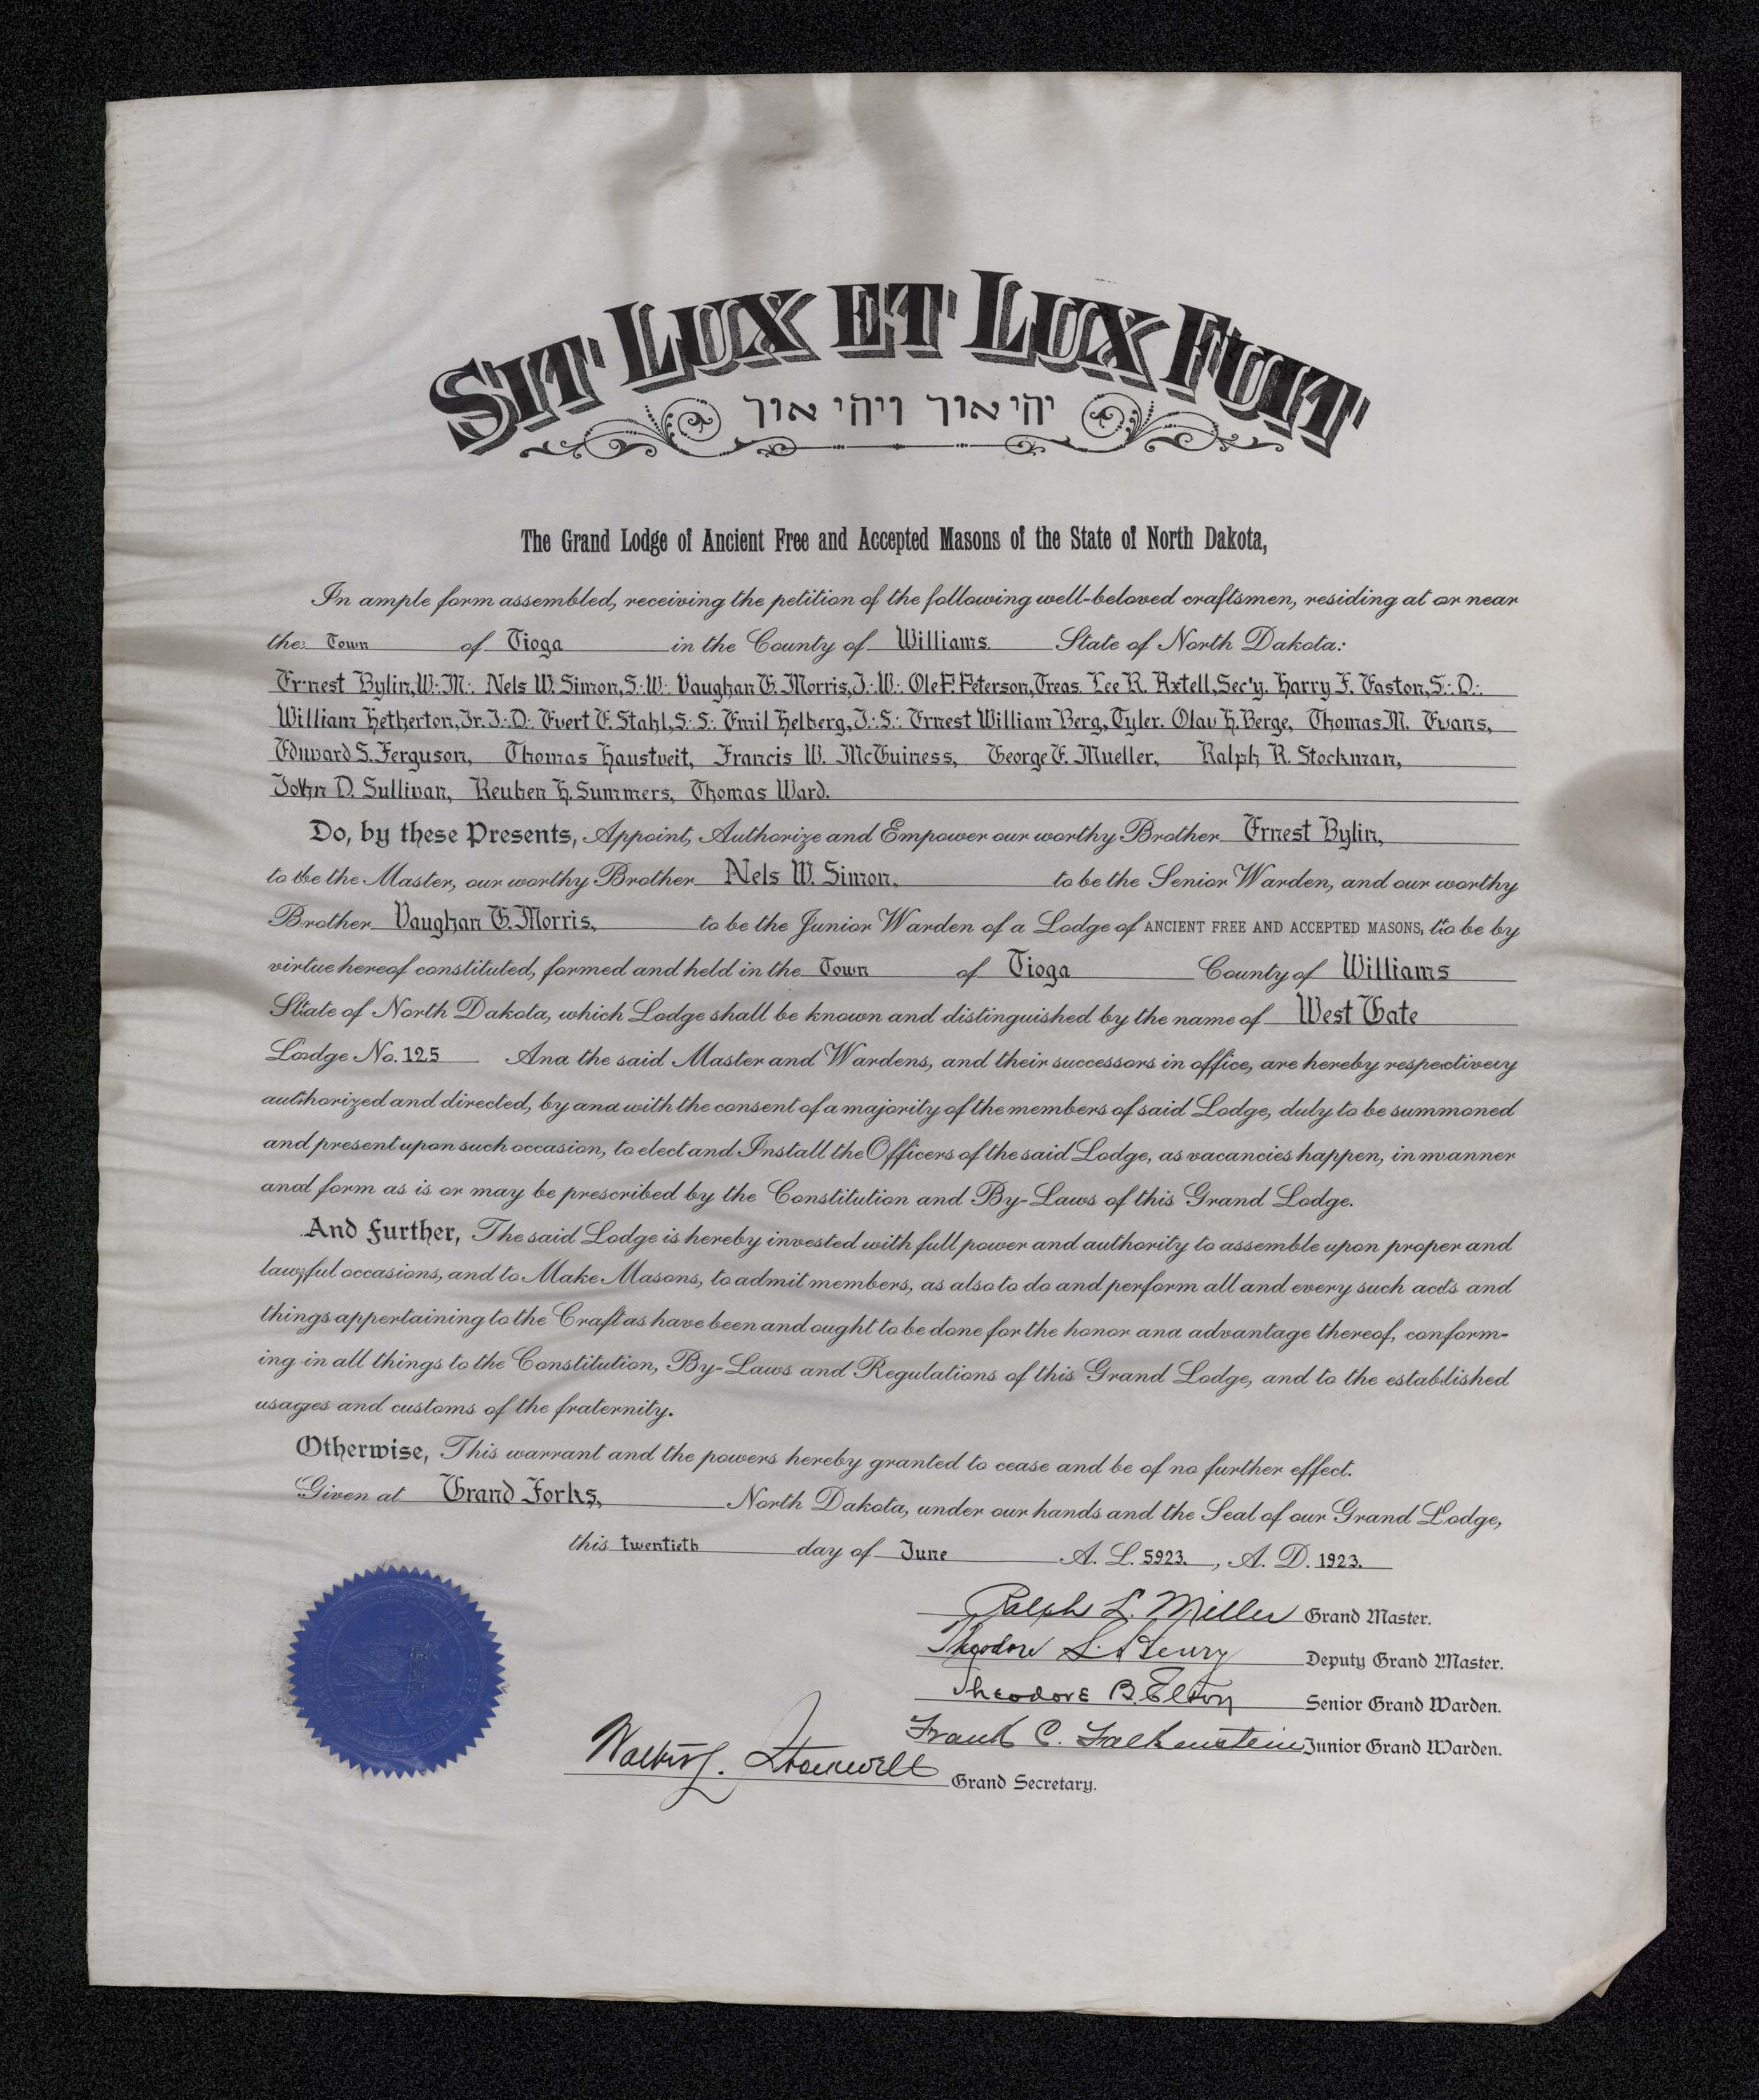 SIT LUX ET LUX FUIT
יהי אור ויהי אור
The Grand Lodge of Ancient Free and Accepted Masons of the State of North Dakota,
In ample form assembled, receiving the petition of the following well-beloved craftsmen, residing at or near
the: Town of Tioga in the County of Williams. State of North Dakota:
Ernest Bylin, W∴M∴ Nels W. Simon, S∴W∴ Vaughan G. Morris, J∴W∴ Ole P. Peterson, Treas. Lee R. Axtell, Sec'y. Harry F. Easton, S∴D∴
William Hetherton, Jr. J∴D∴ Evert E. Stahl, S∴S∴ Emil Helberg, J∴S∴ Ernest William Berg, Tyler. Olav H. Berge, Thomas M. Evans,
Edward S. Ferguson, Thomas Haustveit, Francis W. McGuiness, George E. Mueller, Ralph R. Stockman,
John D. Sullivan, Reuben H. Summers, Thomas Ward.
Do, by these Presents, Appoint, Authorize and Empower our worthy Brother Ernest Bylin,
to be the Master, our worthy Brother Nels W. Simon, to be the Senior Warden, and our worthy
Brother Vaughan G. Morris, to be the Junior Warden of a Lodge of ANCIENT FREE AND ACCEPTED MASONS, to be by
virtue hereof constituted, formed and held in the Town of Tioga County of Williams
State of North Dakota, which Lodge shall be known and distinguished by the name of West Gate
Lodge No. 125 And the said Master and Wardens, and their successors in office, are hereby respectively
authorized and directed, by and with the consent of a majority of the members of said Lodge, duly to be summoned
and present upon such occasion, to elect and Install the Officers of the said Lodge, as vacancies happen, in manner
and form as is or may be prescribed by the Constitution and By-Laws of this Grand Lodge.
And Further, The said Lodge is hereby invested with full power and authority to assemble upon proper and
lawful occasions, and to Make Masons, to admit members, as also to do and perform all and every such acts and
things appertaining to the Craft as have been and ought to be done for the honor and advantage thereof, conform-
ing in all things to the Constitution, By-Laws and Regulations of this Grand Lodge, and to the established
usages and customs of the fraternity.
Otherwise, This warrant and the powers hereby granted to cease and be of no further effect.
Given at Grand Forks, North Dakota, under our hands and the Seal of our Grand Lodge,
this twentieth day of June A. L. 5923. , A. D. 1923.
Ralph L. Miller Grand Master.
Theodore S. Henry Deputy Grand Master.
Theodore B. Elton Senior Grand Warden.
Frank C. Falkenstein Junior Grand Warden.
Walter L. Stockwell Grand Secretary.